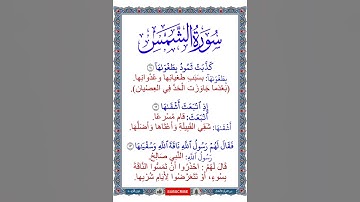 سُورَةُ الشَّمْسِ
كَذَّبَتْ ثَمُودُ بِطَغْوَىٰهَآ ١١
بِطَغْوَىٰهَا: بِسَبَبِ طُغْيَانِهَا وَعُدْوَانِهَا.
(بَعْدَمَا جَاوَزَتِ الْحَدَّ فِي الْعِصْيَانِ).
إِذِ ٱنۢبَعَثَ أَشْقَىٰهَا ١٢
ٱنۢبَعَثَ: قَامَ مُسْرِعًا.
أَشْقَىٰهَا: شَقِيُّ الْقَبِيلَةِ وَأَعْتَاهَا وَأَضَلُّهَا.
فَقَالَ لَهُمْ رَسُولُ ٱللَّهِ نَاقَةَ ٱللَّهِ وَسُقْيَٰهَا ١٣
رَسُولُ ٱللَّهِ: النَّبِيُّ صَالِحٌ.
قَالَ لَهُمْ: احْذَرُوا أَنْ تَمَسُّوا النَّاقَةَ
بِسُوءٍ، أَوْ تَتَعَرَّضُوا لِأَيَّامِ شُرْبِهَا.
SUBSCRIBE